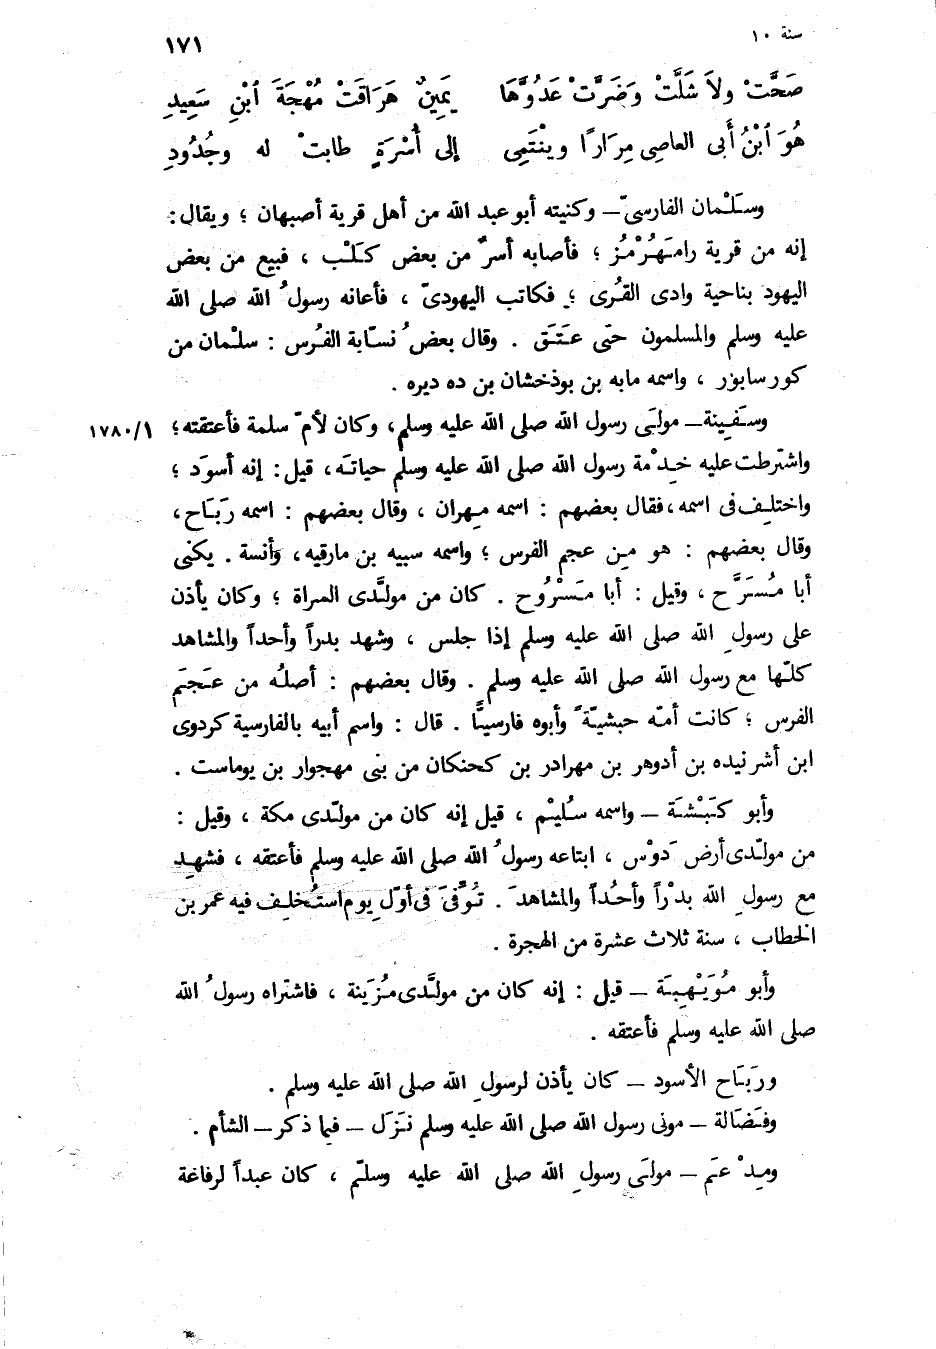 سنة ١٠
١٧١
صَحَّتْ ولاَ شَلَّتْ وَضَرَّتْ عَدُوَّهَا يَمِينٌ هَرَاقَتْ مُهْجَةَ ٱبْنِ سَعِيدِ
هُوَ ٱبْنُ أَبى العاصِى مِرَارًا وينْتَمِى إلى أُسْرَةٍ طابتْ له وجُدُودِ
وسَلْمان الفارسىّ – وكنيته أبو عبد الله من أهل قرية أصبهان ؛ ويقال :
إنه من قرية رامَهُرْمُز ؛ فأصابه أسرٌ من بعض كَلْب ، فبيع من بعض
اليهود بناحية وادى القُرى ؛ فكاتب اليهودىّ ، فأعانه رسولُ الله صلى الله
عليه وسلم والمسلمون حتى عَتَق . وقال بعضُ نسّابة الفُرس : سلْمان من
كور سابوَر ، واسمه مابه بن بوذخشان بن ده ديره .
وسَفِينة – مولَى رسول الله صلى الله عليه وسلم ، وكان لأمّ سلمة فأعتقته ؛ ١٧٨٠/١
واشترطت عليه خِدْمة رسول الله صلى الله عليه وسلم حياتَه ، قيل : إنه أسوَد ؛
واختلِف فى اسمه ، فقال بعضهم : اسمه مِهران ، وقال بعضهم : اسمه رَبَاح ،
وقال بعضهم : هو مِن عجم الفرس ؛ واسمه سبيه بن مارقيه ، وأنسة . يكنى
أبا مُسَرَّح ، وقيل : أبا مَسْرُوح . كان من مولَّدى السراة ؛ وكان يأذن
على رسولِ الله صلى الله عليه وسلم إذا جلس ، وشهد بدراً وأحداً والمشاهد
كلّها مع رسول الله صلى الله عليه وسلم . وقال بعضهم : أصلُه من عَجَم
الفرس ؛ كانت أمّه حبشيّةً وأبوه فارسيًّا . قال : واسم أبيه بالفارسية كردوى
ابن أشرنيده بن أدوهر بن مهرادر بن كحنكان من بنى مهجوار بن يوماست .
وأبو كَبْشَة – واسمه سُليْم ، قيل إنه كان من مولّدى مكة ، وقيل :
من مولّدى أرض دَوْس ، ابتاعه رسولُ الله صلى الله عليه وسلم فأعتقه ، فشهِد
مع رسولِ الله بدْراً وأحُداً والمشاهدَ . تُوُفِّىَ فى أوّل يوم استُخلِف فيه عمر بن
الخطاب ، سنة ثلاث عشرة من الهجرة .
وأبو مُوَيْهِبَة – قيل : إنه كان من مولَّدى مُزَينة ، فاشتراه رسولُ الله
صلى الله عليه وسلم فأعتقه .
ورَبَاح الأسود – كان يأذن لرسولِ الله صلى الله عليه وسلم .
وفَضَالة – مولى رسول الله صلى الله عليه وسلم نَزَل – فيما ذكر – الشأم .
ومِدْعَم – مولَى رسولِ الله صلى الله عليه وسلّم ، كان عبداً لرفاعة